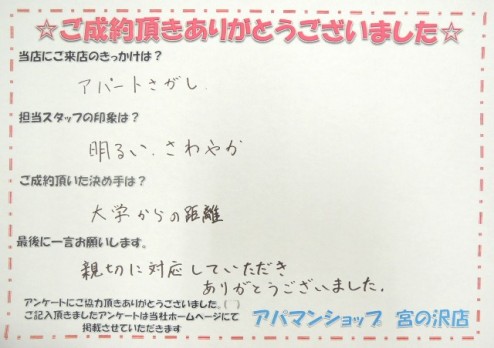 ☆ご成約頂きありがとうございました☆
当店にご来店のきっかけは？
アパートさがし
担当スタッフの印象は？
明るい、さわやか
ご成約頂いた決め手は？
大学からの距離
最後に一言お願いします。
親切に対応していただき
ありがとうございました。
アンケートにご協力頂きありがとうございました。
ご記入頂きましたアンケートは当社ホームページにて
掲載させていただきます
アパマンショップ 宮の沢店